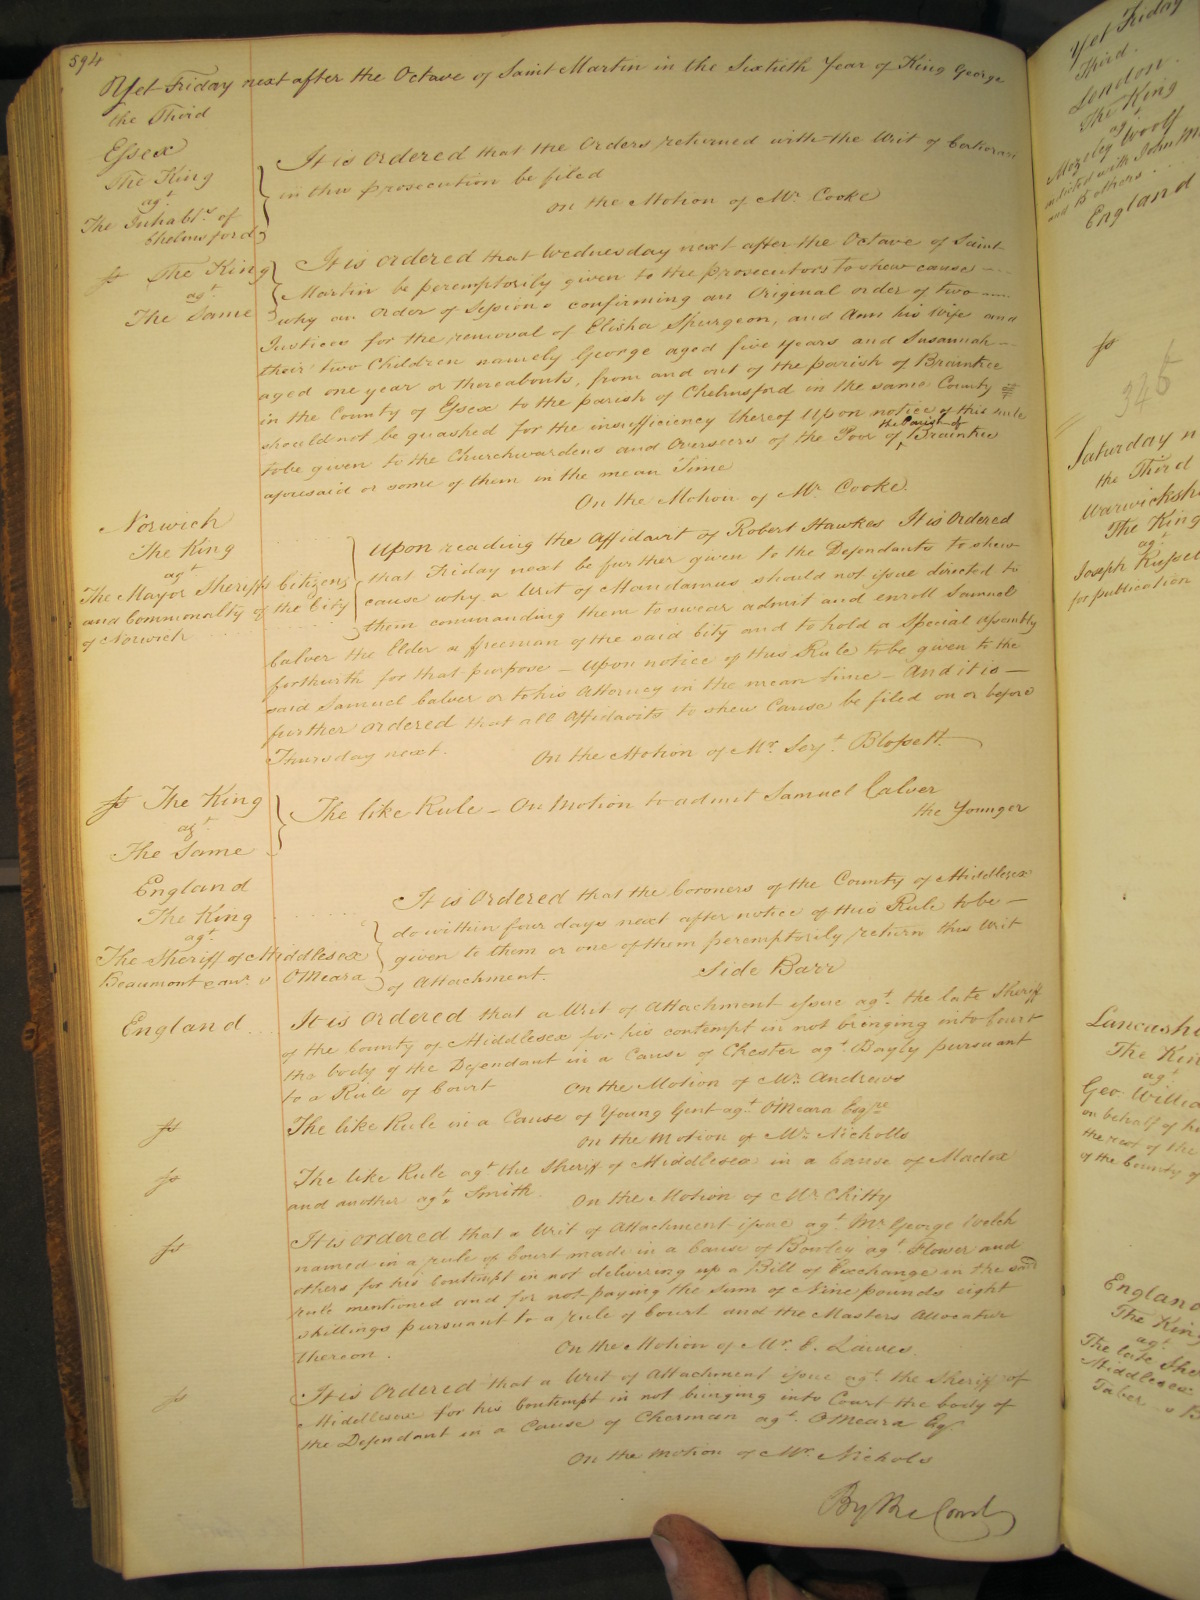 594
Yet Friday next after the Octave of Saint Martin in the Sixtieth Year of King George
the Third
Essex
The King
agt.
The Inhabts. of
Chelmsford
It is ordered that the Orders returned with the Writ of Certiorari
in this prosecution be filed
On the Motion of Mr. Cooke
The King
agt.
The Same
It is ordered that Wednesday next after the Octave of Saint
Martin be peremptorily given to the prosecutors to shew cause
why an Order of Sessions confirming an Original order of two
Justices for the removal of Elisha Spurgeon, and Ann his Wife and
their two Children namely George aged five years and Susannah
aged one year or thereabouts, from and out of the parish of Braintree
in the County of Essex to the parish of Chelmsford in the same County
should not be quashed for the insufficiency thereof Upon notice of this rule
to be given to the Churchwardens and Overseers of the Poor of the Parish of Braintree
aforesaid or some of them in the mean Time
On the Motion of Mr. Cooke.
Norwich
The King
agt
The Mayor Sheriffs Citizens
and Commonalty of the City
of Norwich
Upon reading the Affidavit of Robert Hawkes It is Ordered
that Friday next be further given to the Defendants to shew
cause why a Writ of Mandamus should not issue directed to
them commanding them to swear admit and enroll Samuel
Calver the Elder a freeman of the said City and to hold a Special Assembly
forthwith for that purpose – Upon notice of this Rule to be given to the
said Samuel Calver or to his Attorney in the mean time – And it is –
further ordered that all Affidavits to shew Cause be filed on or before
Thursday next.
On the Motion of Mr. Serjt. Blossett
The King
agt.
The Same
The like Rule – On Motion to admit Samuel Calver
the Younger
England
The King
agt.
The Sheriff of Middlesex
Beaumont v O'Meara
It is ordered that the Coroners of the County of Middlesex
do within four days next after notice of this Rule to be –
given to them or one of them peremptorily return this Writ
of Attachment.
Side Barr
England
It is ordered that a Writ of Attachment issue agt. the late Sheriff
of the County of Middlesex for his contempt in not bringing into Court
the body of the Defendant in a Cause of Chester agt. Bayly pursuant
to a Rule of Court
On the Motion of Mr. Andrews
The like Rule in a Cause of Young Gent agt. O'Meara Esqre
On the Motion of Mr. Nicholls
The like Rule agt the Sheriff of Middlesex in a Cause of Madox
and another agt. Smith
On the Motion of Mr. Chitty
It is ordered that a Writ of Attachment issue agt. Mr George Welch
named in a rule of Court made in a Cause of Bowley agt. Flower and
others for his Contempt in not delivering up a Bill of Exchange in the said
rule mentioned and for not paying the Sum of Nine pounds eight
shillings pursuant to a rule of Court and the Masters Allocatur
thereon.
On the Motion of Mr. E. Lawes.
It is Ordered that a Writ of Attachment issue agt. the Sheriff of
Middlesex for his Contempt in not bringing into Court the body of
the Defendant in a Cause of Cherman agt. O'Meara Esq.
On the Motion of Mr. Nichols
By the Court
Yet Friday
Third.
London.
The King
agt
Mozeley Woolf
indicted with John
and others.
England
346
Saturday n
the Third
Warwicksh
The King
agt
Joseph Russel
for publication
Lancashi
The Kin
agt
Geo Willia
on behalf of
the rest of the
of the County of
England
The King
agt.
The late She
Middlesex
Taber v